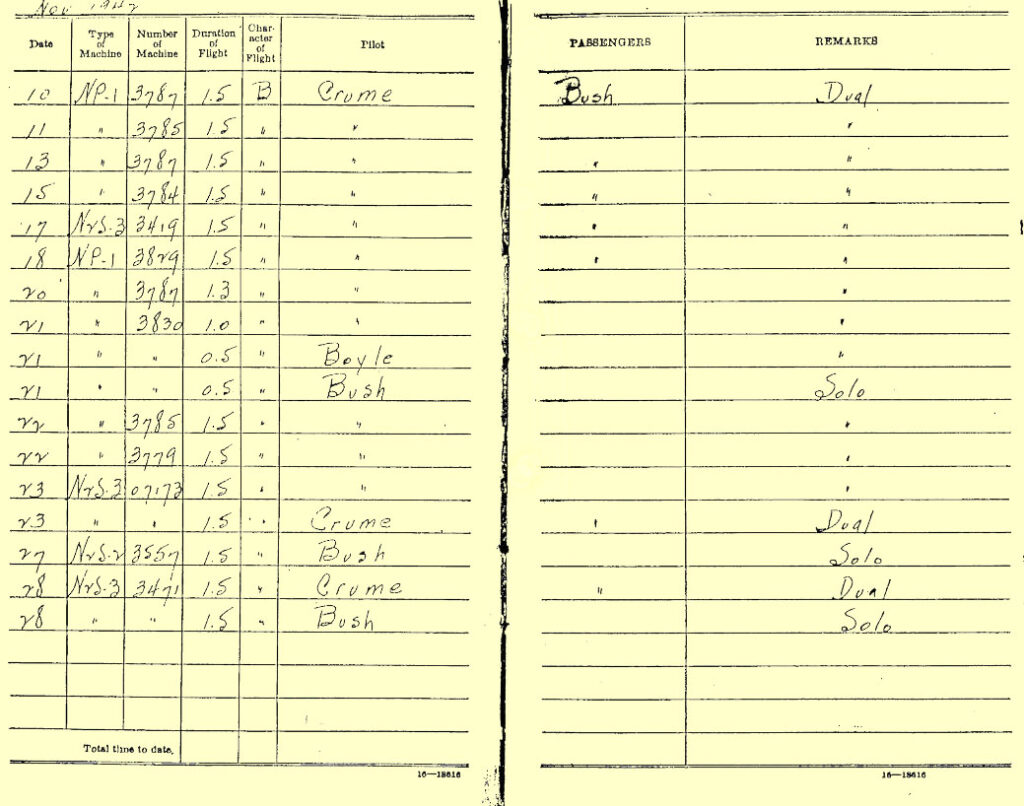 Nov 1942
Date Type of Machine Number of Machine Duration of Flight Character of Flight Pilot PASSENGERS REMARKS
10 NP-1 3787 1.5 B Crume Bush Dual
11 " 3785 1.5 " " "
13 " 3787 1.5 " " " "
15 " 3784 1.5 " " " "
17 N2S-3 3419 1.5 " " " "
18 NP-1 3829 1.5 " " " "
20 " 3787 1.3 " " "
21 " 3830 1.0 " " "
21 " " 0.5 " Boyle "
21 " " 0.5 " Bush Solo
22 " 3785 1.5 " " "
22 " 3779 1.5 " " "
23 N2S-3 07173 1.5 " " "
23 " " 1.5 " Crume " Dual
27 N2S-2 3557 1.5 " Bush Solo
28 N2S-3 3471 1.5 " Crume " Dual
28 " " 1.5 " Bush Solo
Total time to date,
16—18616 16—18616